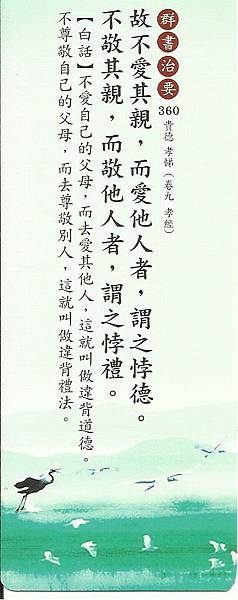 群書治要
360 貴德 孝悌（卷九 孝經）
故不愛其親，而愛他人者，謂之悖德。
不敬其親，而敬他人者，謂之悖禮。
【白話】不愛自己的父母，而去愛其他人，這就叫做違背道德。
不尊敬自己的父母，而去尊敬別人，這就叫做違背禮法。